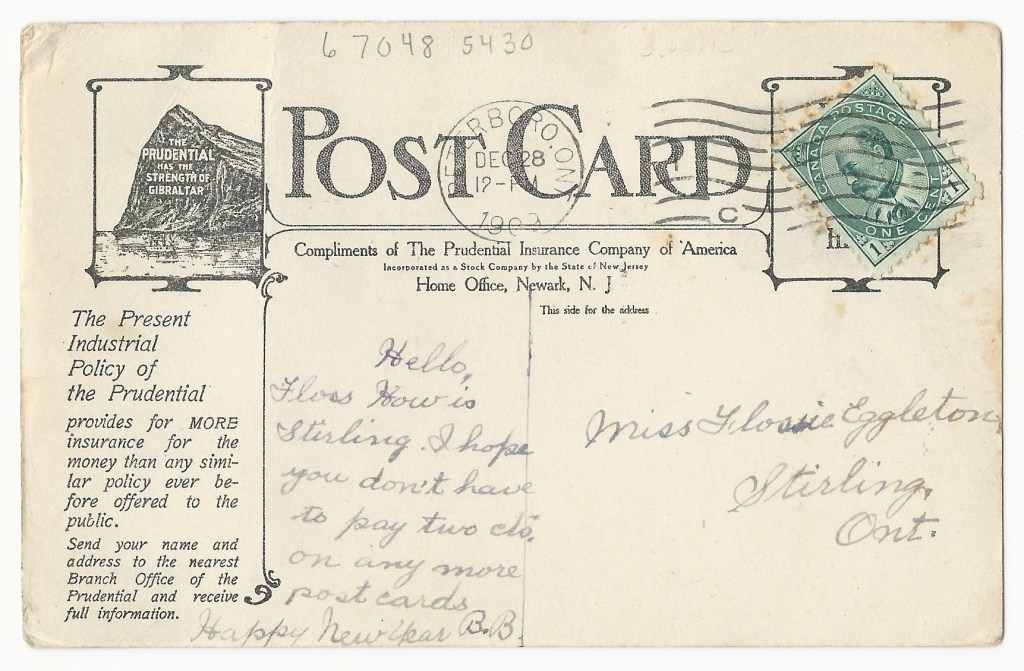 6 7048 5430
THE
PRUDENTIAL
HAS THE
STRENGTH OF
GIBRALTAR
POST CARD
DEC 28
12-PM
C
CANADA POSTAGE
ONE CENT
1
1
Compliments of The Prudential Insurance Company of America
Incorporated as a Stock Company by the State of New Jersey
Home Office, Newark, N. J.
This side for the address
The Present
Industrial
Policy of
the Prudential
provides for MORE
insurance for the
money than any simi-
lar policy ever be-
fore offered to the
public.
Send your name and
address to the nearest
Branch Office of the
Prudential and receive
full information.
Hello,
Floss How is
Stirling. I hope
you don't have
to pay two cts.
on any more
postcards
Happy New Year B.B.
Miss Flossie Eggleton
Stirling,
Ont.